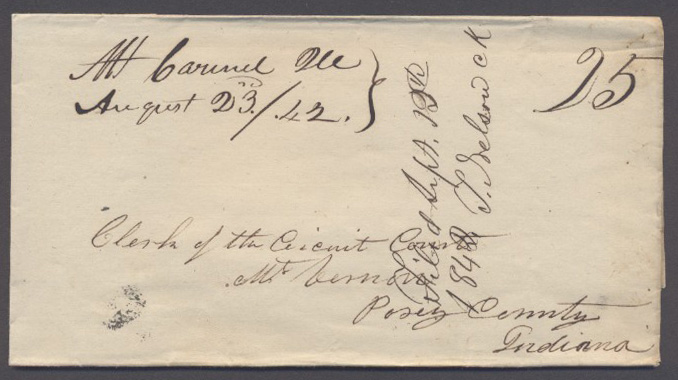 Mt Carmel Ill
August 23rd/.42.
25
Clerk of the Circuit Court
Mt Vernon
Posey County
Indiana
Filed Sept. 13th
1842 Nelson ck